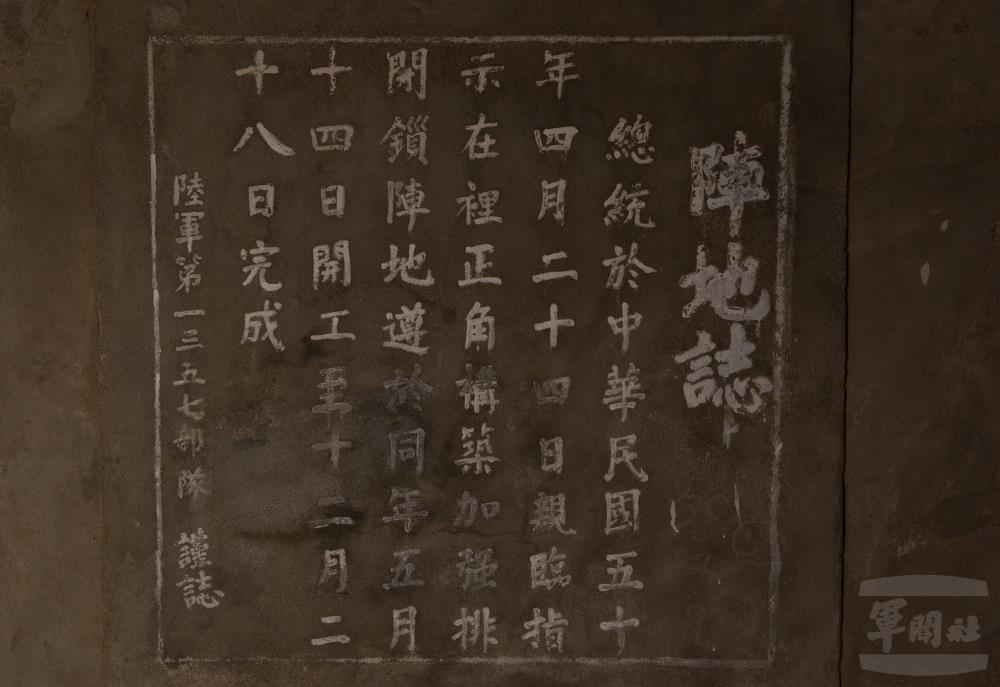 陣地誌
總統於中華民國五十
年四月二十四日親臨指
示在裡正角構築加强排
閉鎖陣地遵於同年五月
十四日開工至十二月二
十八日完成
陸軍第一三五七部隊 謹誌
軍聞社